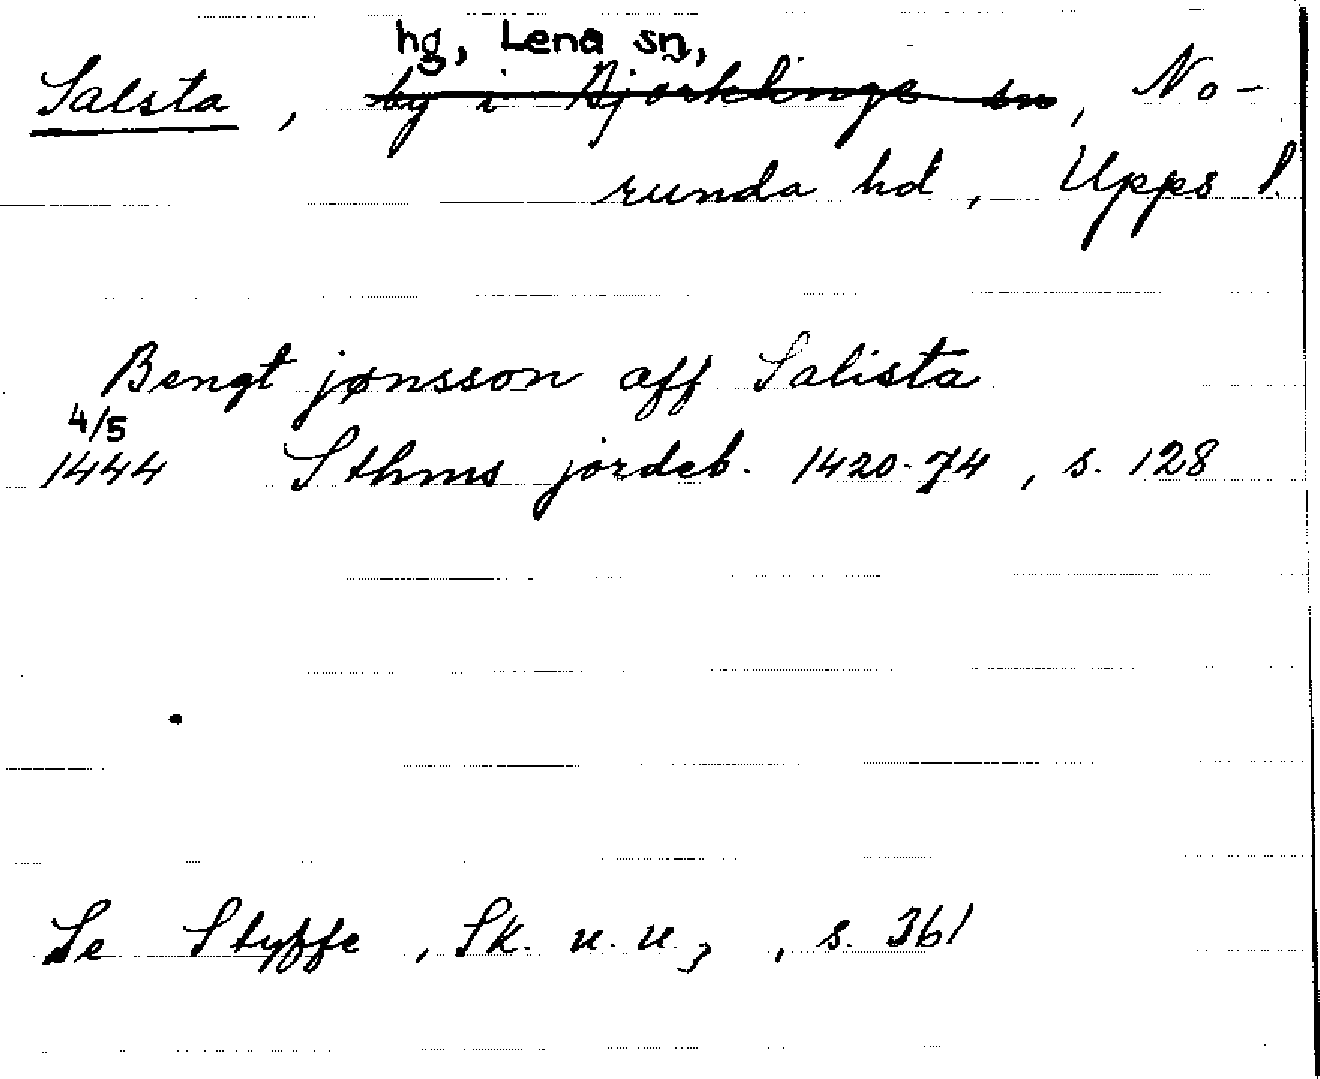 hg, Lena sn,
Salsta, by i Björklinge sn, No-
runda hd, Upps l.
Bengt jønsson aff Salista
4/5
1444 Sthms jordeb. 1420-74, s. 128
Se Styffe, Sk. u. u., s. 361